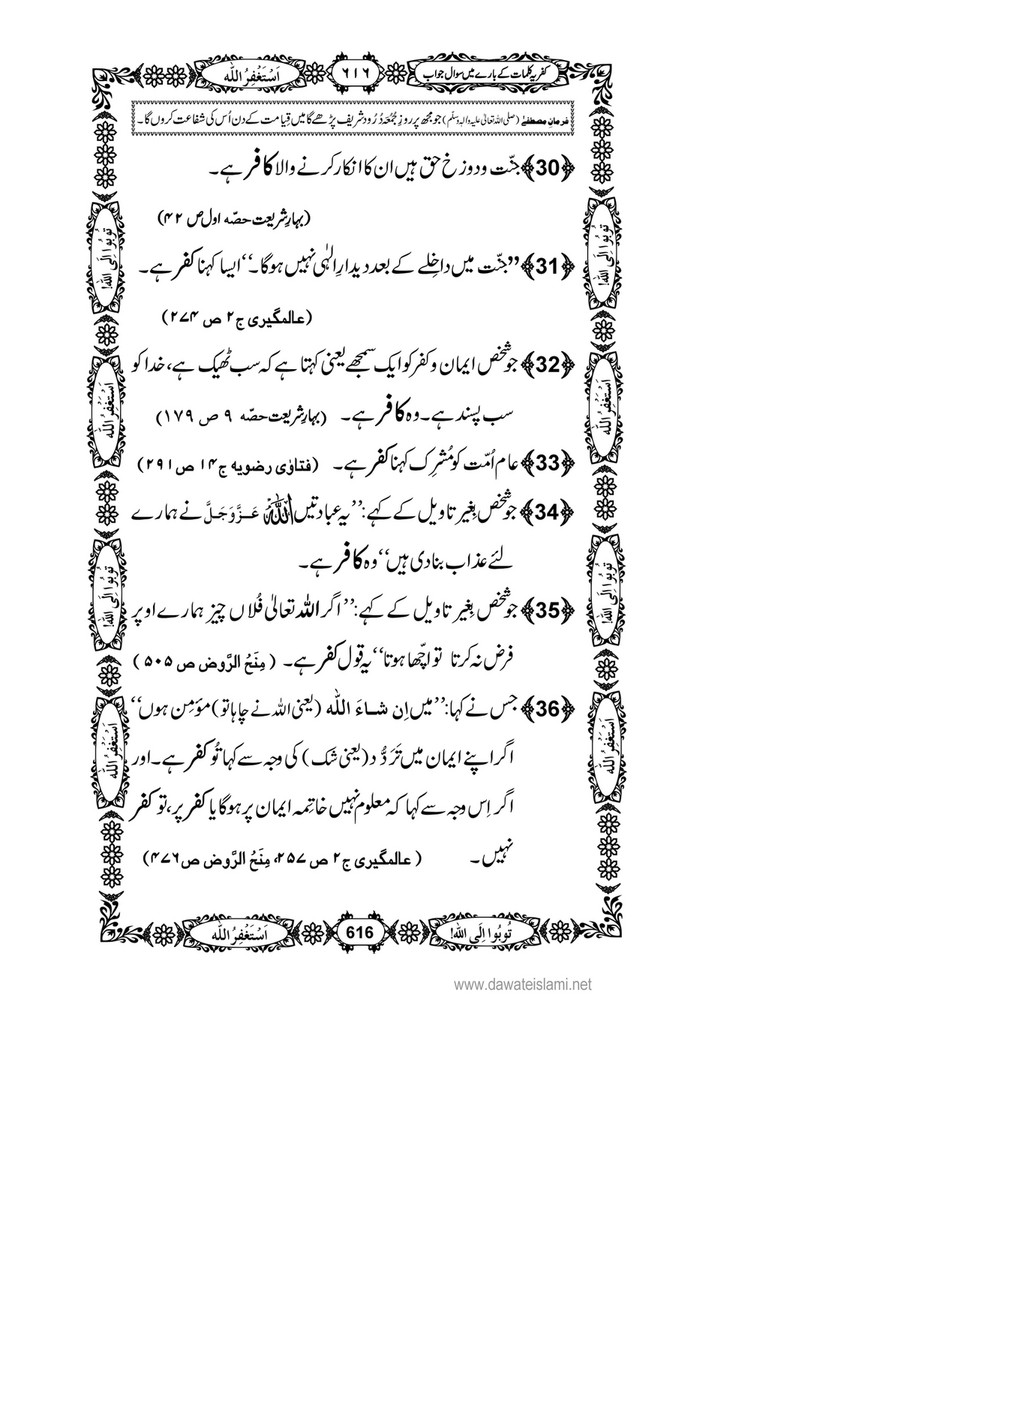 کفریہ کلمات کے بارے میں سوال جواب
٦١٦
اَسْتَغْفِرُ اللّٰه
فرمانِ مصطفیٰ (صلی اللہ تعالیٰ علیہ والہ وسلّم) جو مجھ پر روزِ جُمُعہ دُرُود شریف پڑھے گا میں قِیامت کے دن اُس کی شفاعت کروں گا۔
﴿30﴾ جنّت ودوزخ حق ہیں ان کا انکار کرنے والا کافر ہے۔
(بہارِ شریعت حصّہ اول ص ۴۲)
﴿31﴾ ’’جنّت میں داخِلے کے بعد دیدارِ الٰہی نہیں ہوگا۔‘‘ ایسا کہنا کفر ہے۔
(عالمگیری ج۲ ص ۲۷۴)
﴿32﴾ جو شخص ایمان و کفر کو ایک سمجھے یعنی کہتا ہے کہ سب ٹھیک ہے، خدا کو
سب پسند ہے۔ وہ کافر ہے۔ (بہارِ شریعت حصّہ ۹ ص ۱۷۹)
﴿33﴾ عام اُمّت کو مُشرِک کہنا کفر ہے۔ (فتاوٰی رضویہ ج۱۴ ص۲۹۱)
﴿34﴾ جو شخص بِغیر تاویل کے کہے: ’’یہ عبادتیں اللہ عَزَّوَجَلَّ نے ہمارے
لئے عذاب بنادی ہیں‘‘ وہ کافر ہے۔
﴿35﴾ جو شخص بِغیر تاویل کے کہے: ’’اگر اللہ تعالیٰ فُلاں چیز ہمارے اوپر
فرض نہ کرتا تو اچّھا ہوتا‘‘ یہ قول کفر ہے۔ (مِنَحُ الرَّوض ص ۵۰۵)
﴿36﴾ جس نے کہا: ’’میں اِن شاءَ اللّٰه (یعنی اللہ نے چاہا تو) مؤمِن ہوں‘‘
اگر اپنے ایمان میں تَرَدُّد (یعنی شک) کی وجہ سے کہا تُو کفر ہے۔ اور
اگر اِس وجہ سے کہا کہ معلوم نہیں خاتِمہ ایمان پر ہوگا یا کفر پر، تو کفر
نہیں۔ (عالمگیری ج۲ ص ۲۵۷، مِنَحُ الرَّوض ص۴۷۶)
تُوبُوا اِلَی اللّٰه!
اَسْتَغْفِرُ اللّٰه
تُوبُوا اِلَی اللّٰه!
اَسْتَغْفِرُ اللّٰه
تُوبُوا اِلَی اللّٰه!
اَسْتَغْفِرُ اللّٰه
تُوبُوا اِلَی اللّٰه!
اَسْتَغْفِرُ اللّٰه
تُوبُوا اِلَی اللّٰه!
616
اَسْتَغْفِرُ اللّٰه
www.dawateislami.net